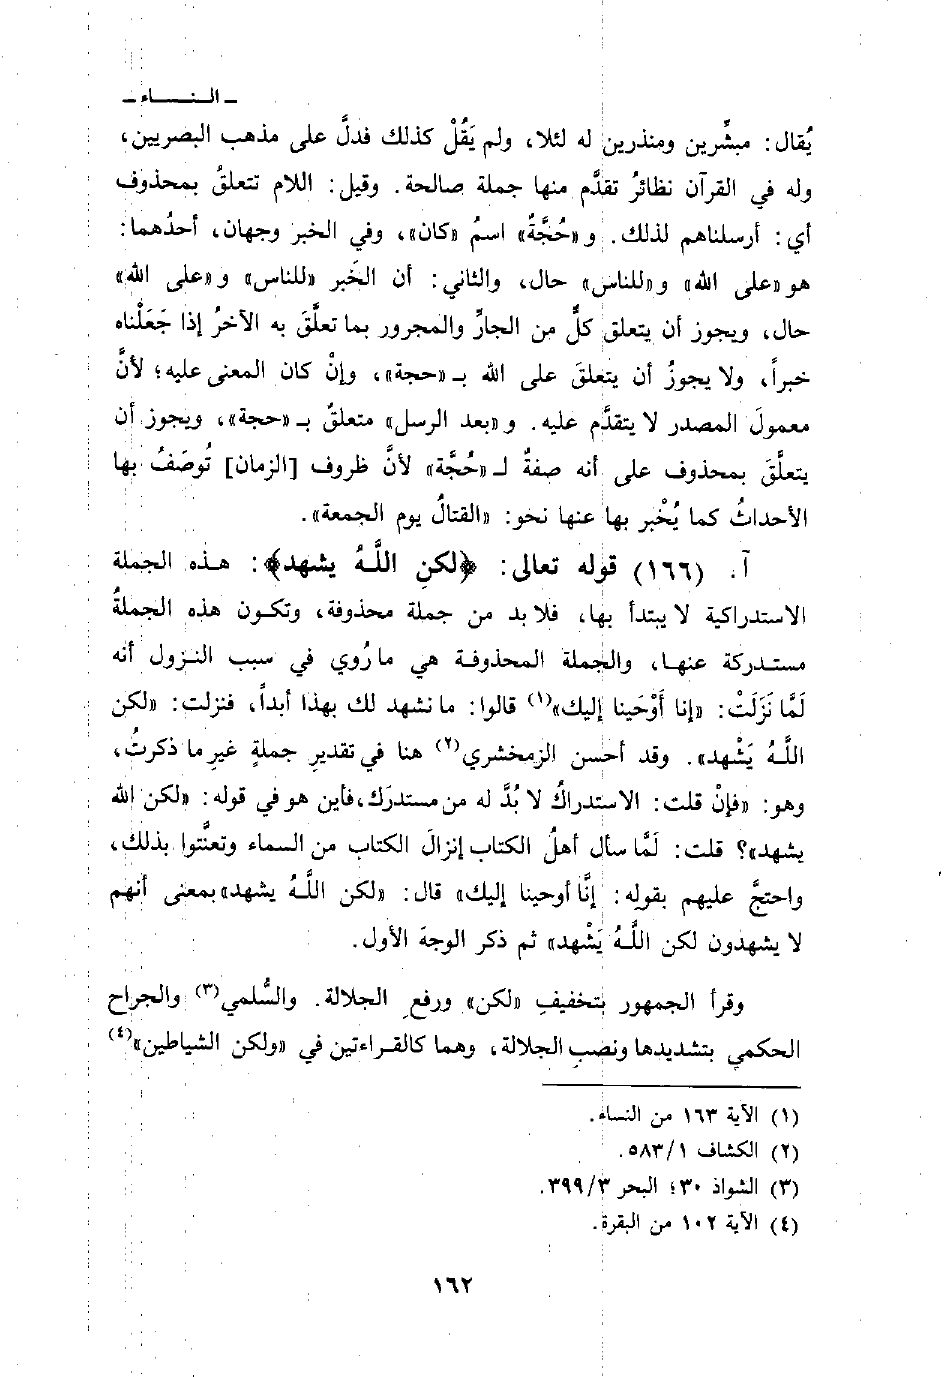 ـ النـــاء ـ
يُقال: مبشِّرين ومنذرين له لئلا، ولم يَقُلْ كذلك فدلَّ على مذهب البصريين،
وله في القرآن نظائرُ تقدَّم منها جملة صالحة. وقيل: اللام تتعلقُ بمحذوف
أي: أرسلناهم لذلك. و«حُجَّةٌ» اسمُ «كان»، وفي الخبر وجهان، أحدُهما:
هو«على الله» و«للناس» حال، والثاني: أن الخَبر «للناس» و«على الله»
حال، ويجوز أن يتعلق كلٌّ من الجارِّ والمجرور بما تعلَّقَ به الآخرُ إذا جَعَلْناه
خبراً، ولا يجوزُ أن يتعلقَ على الله بـ«حجة»، وإنْ كان المعنى عليه؛ لأنَّ
معمولَ المصدر لا يتقدَّم عليه. و«بعد الرسل» متعلقٌ بـ«حجة»، ويجوز أن
يتعلَّقَ بمحذوف على أنه صفةٌ لـ«حُجَّة» لأنَّ ظروف [الزمان] تُوصَفُ بها
الأحداثُ كما يُخْبر بها عنها نحو: «القتالُ يوم الجمعة».
آ. (١٦٦) قوله تعالى: ﴿لكنِ اللَّهُ يشهد﴾: هذه الجملة
الاستدراكية لا يبتدأ بها، فلا بد من جملة محذوفة، وتكون هذه الجملةُ
مستدركة عنها، والجملة المحذوفة هي ما رُوي في سبب النزول أنه
لَمَّا نَزَلَتْ: «إنا أَوْحَينا إليك»(١) قالوا: ما نشهد لك بهذا أبداً، فنزلت: «لكن
اللَّهُ يَشْهد». وقد أحسن الزمخشري(٢) هنا في تقديرِ جملةٍ غيرِ ما ذكرتُ،
وهو: «فإنْ قلت: الاستدراكُ لا بُدَّ له من مستدرَك، فأين هو في قوله: «لكن الله
يشهد»؟ قلت: لَمَّا سأل أهلُ الكتاب إنزالَ الكتاب من السماء وتعنَّتوا بذلك،
واحتجَّ عليهم بقوله: إنَّا أوحينا إليك» قال: «لكن اللَّهُ يشهد» بمعنى أنهم
لا يشهدون لكن اللَّهُ يَشْهد» ثم ذكر الوجهَ الأول.
وقرأ الجمهور بتخفيفِ «لكن» ورفعِ الجلالة. والسُّلمي(٣) والجراح
الحكمي بتشديدها ونصبِ الجلالة، وهما كالقراءتين في «ولكن الشياطين»(٤)
(١) الآية ١٦٣ من النساء.
(٢) الكشاف ٥٨٣/١.
(٣) الشواذ ٣٠؛ البحر ٣٩٩/٣.
(٤) الآية ١٠٢ من البقرة.
١٦٢